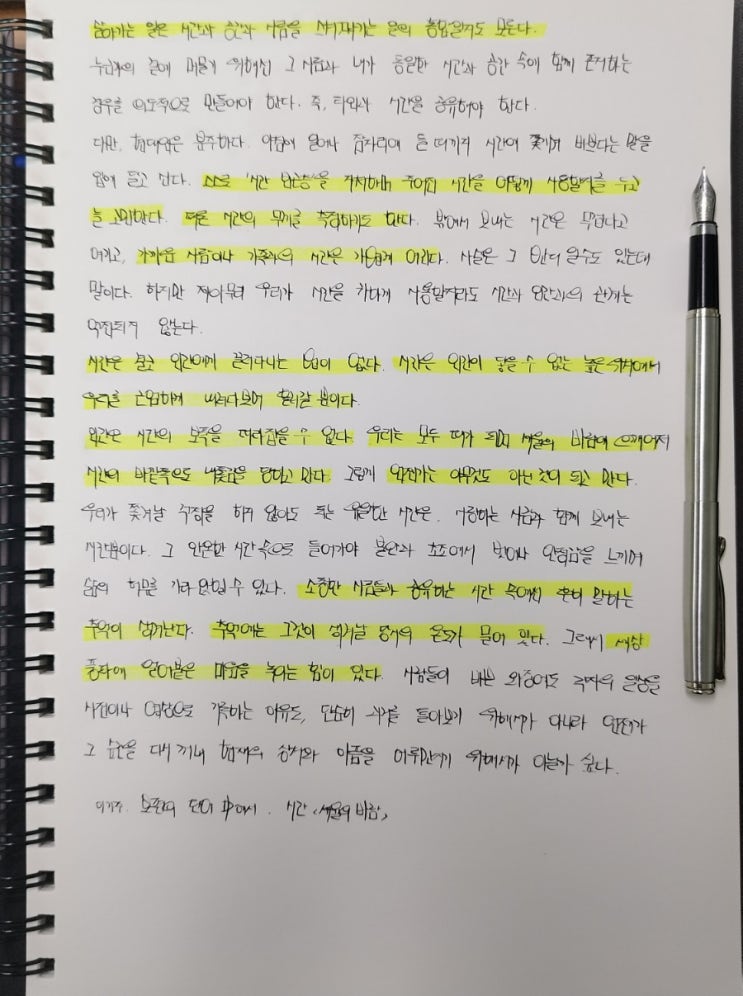 살아가는 일은 시간과 공간과 사람을 스쳐지나가는 일의 총합일지도 모른다.
누군가의 곁에 머물기 위해선 그 사람과 내가 동일한 시간과 공간 속에 함께 존재하는
경우를 의도적으로 만들어야 한다. 즉, 타인과 시간을 공유해야 한다.
다만, 현대인은 분주하다. 아침에 일어나 잠자리에 들 때까지 시간에 쫓기며 바쁘다는 말을
입에 달고 산다. 스스로 '시간 빈곤층'을 자처하며 주어진 시간을 어떻게 사용할지를 두고
늘 고민한다. 때론 시간의 무게를 측정하기도 한다. 밖에서 보내는 시간은 무겁다고
여기고, 가까운 사람이나 가족과의 시간은 가볍게 여긴다. 사실은 그 반대일 수도 있는데
말이다. 하지만 제아무리 우리가 시간을 귀하게 사용할지라도 시간과 인간과의 관계는
역전되지 않는다.
시간은 결코 인간에게 끌려다니는 법이 없다. 시간은 인간이 닿을 수 없는 높은 위치에서
우리를 근엄하게 내려다보며 흘러갈 뿐이다.
인간은 시간의 보폭을 따라잡을 수 없다. 우리는 모두 때가 되면 세월의 바람에
시간의 바깥쪽으로 내쫓김을 당하고 만다. 그렇게 인간은 아무것도 아닌 것이 되고 만다.
우리가 쫓겨날 걱정을 하지 않아도 되는 유일한 시간은, 사랑하는 사람과 함께 보내는
시간뿐이다. 그 안온한 시간 속으로 들어가야 불안과 초조에서 벗어나 안정감을 느끼며
삶의 허무를 가라앉힐 수 있다. 소중한 사람들과 공유하는 시간 속에선 흔히 말하는
추억이 생겨난다. 추억에는 그것이 생겨날 당시의 온도가 묻어 있다. 그래서 세상
풍파에 얼어붙은 마음을 녹이는 힘이 있다. 사람들이 바쁜 와중에도 각자의 일상을
사진이나 영상으로 기록하는 이유도, 단순히 과거를 돌아보기 위해서가 아니라 언젠가
그 순간을 다시 꺼내 현재의 상처와 아픔을 어루만지기 위해서가 아닐까 싶다.
이기주. 보편의 단어 中에서. 시간 <세월의 바람>